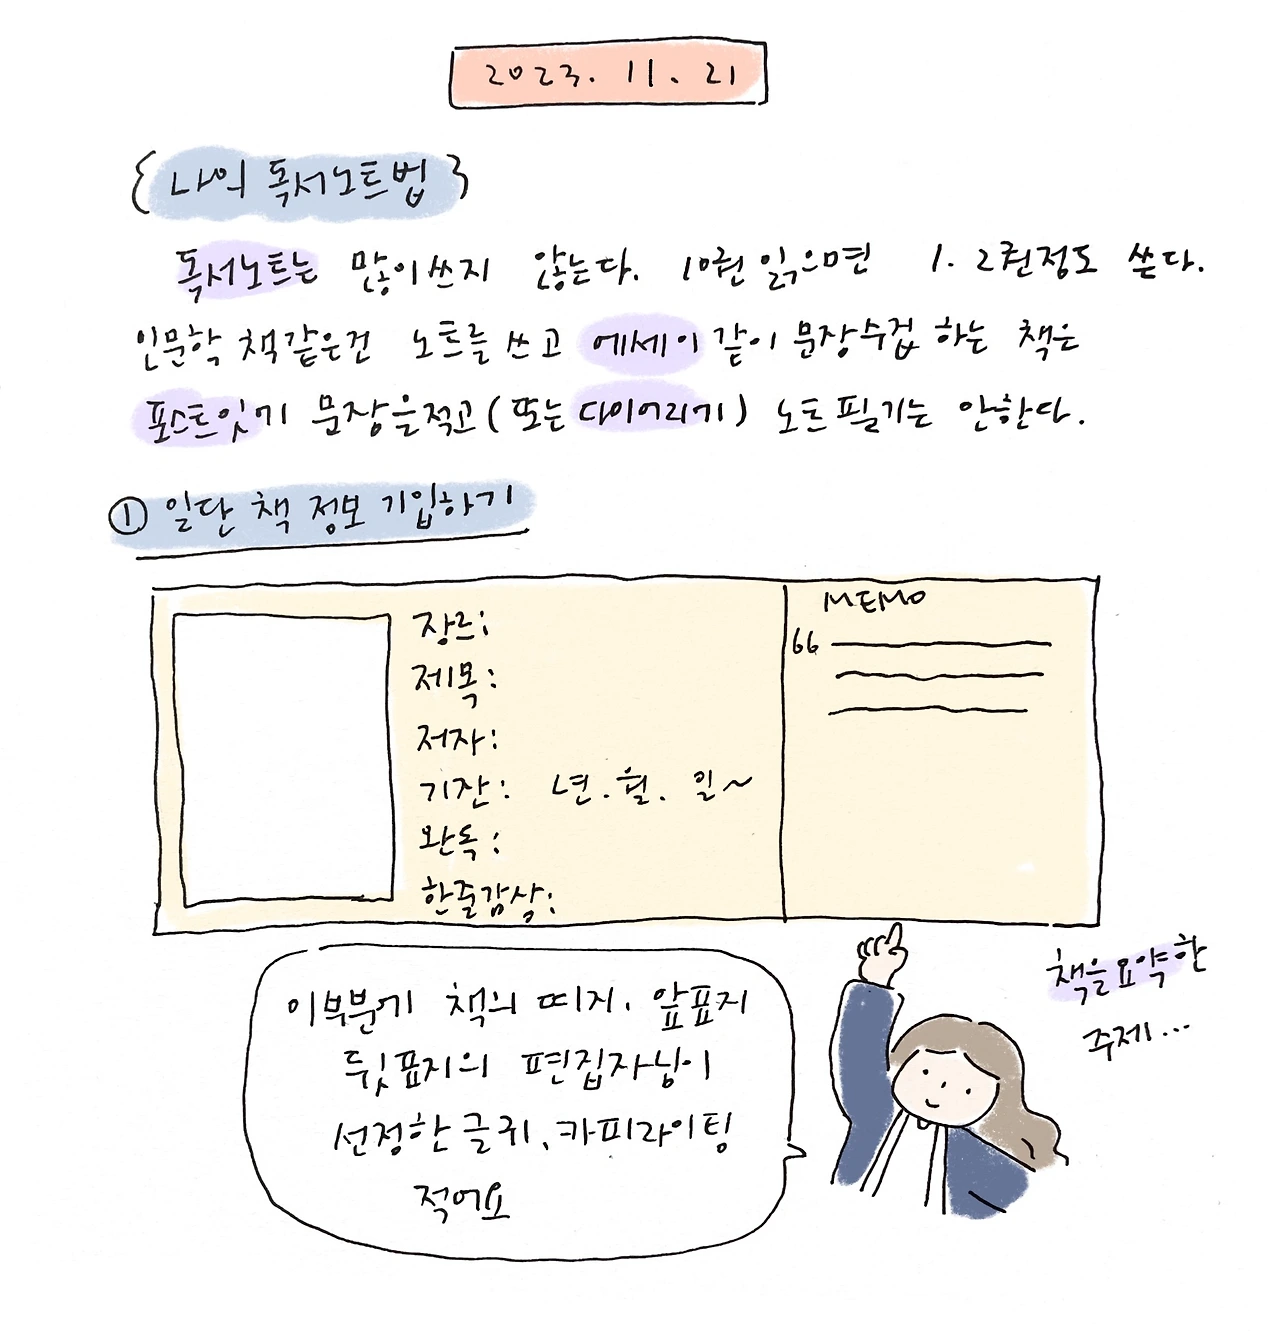 2023. 11. 21
{나의 독서노트법}
독서노트는 많이쓰지 않는다. 10권 읽으면 1. 2권정도 쓴다.
인문학 책같은건 노트를 쓰고 에세이 같이 문장수집 하는 책은
포스트잇에 문장을적고 (또는 다이어리에) 노트필기는 안한다.
① 일단 책 정보 기입하기
장르:
제목:
저자:
기간: 년. 월. 일~
완독:
한줄감상:
MEMO
66
이부분에 책의 띠지, 앞표지
뒷표지의 편집자님이
선정한 글귀, 카피라이팅
적어요
책을 요약한
주제...